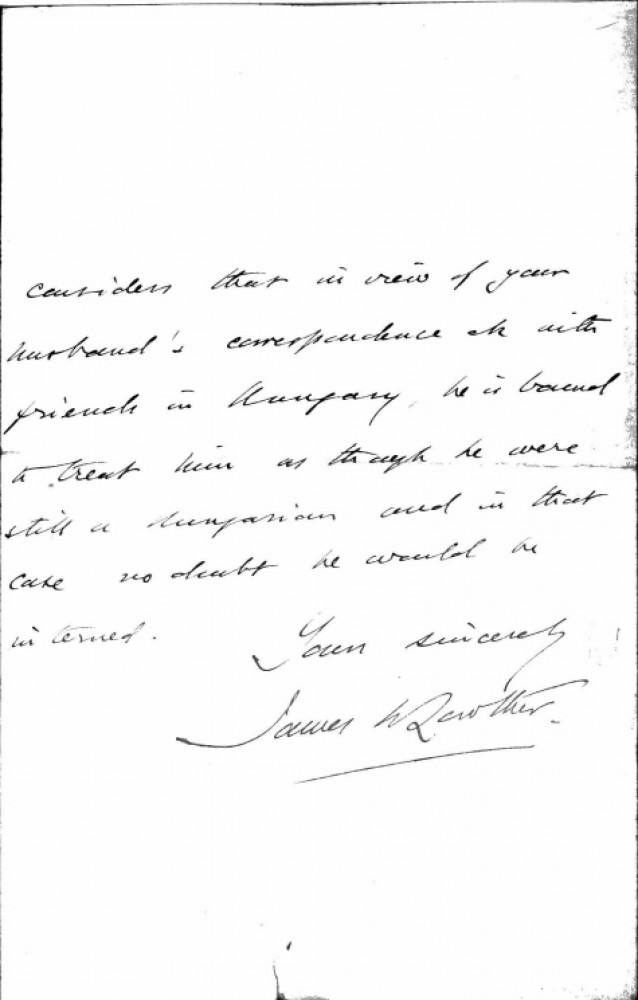 considers that in view of your
husband's correspondence &c with
friends in Hungary, he is bound
to treat him as though he were
still a Hungarian and in that
case no doubt he would be
interned.
Yours sincerely
James W Lowther.